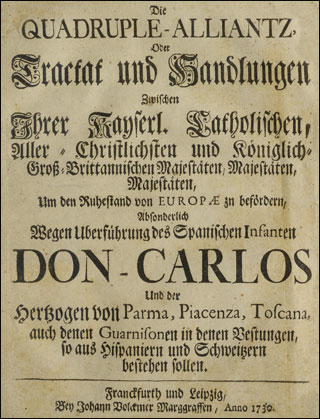 Die
QUADRUPLE-ALLIANTZ,
Oder
Tractat und Handlungen
Zwischen
Ihrer Kayserl. Catholischen,
Aller-Christlichsten und Königlich-
Groß-Brittannischen Majestäten, Majestäten,
Majestäten,
Um den Ruhestand von EUROPÆ zu befördern,
Absonderlich
Wegen Uberführung des Spanischen Infanten
DON-CARLOS
Und der
Hertzogen von Parma, Piacenza, Toscana,
auch denen Guarnisonen in denen Vestungen,
so aus Hispaniern und Schweitzern
bestehen sollen.
Franckfurth und Leipzig,
Bey Johann Volckmer Marggraffen, Anno